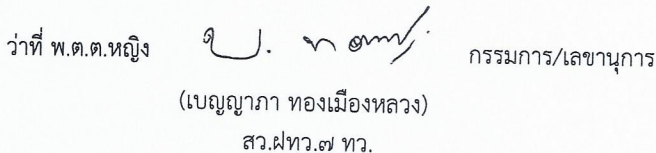 ว่าที่ พ.ต.ต.หญิง กรรมการ/เลขานุการ
(เบญญาภา ทองเมืองหลวง)
สว.ฝทว.๗ ทว.